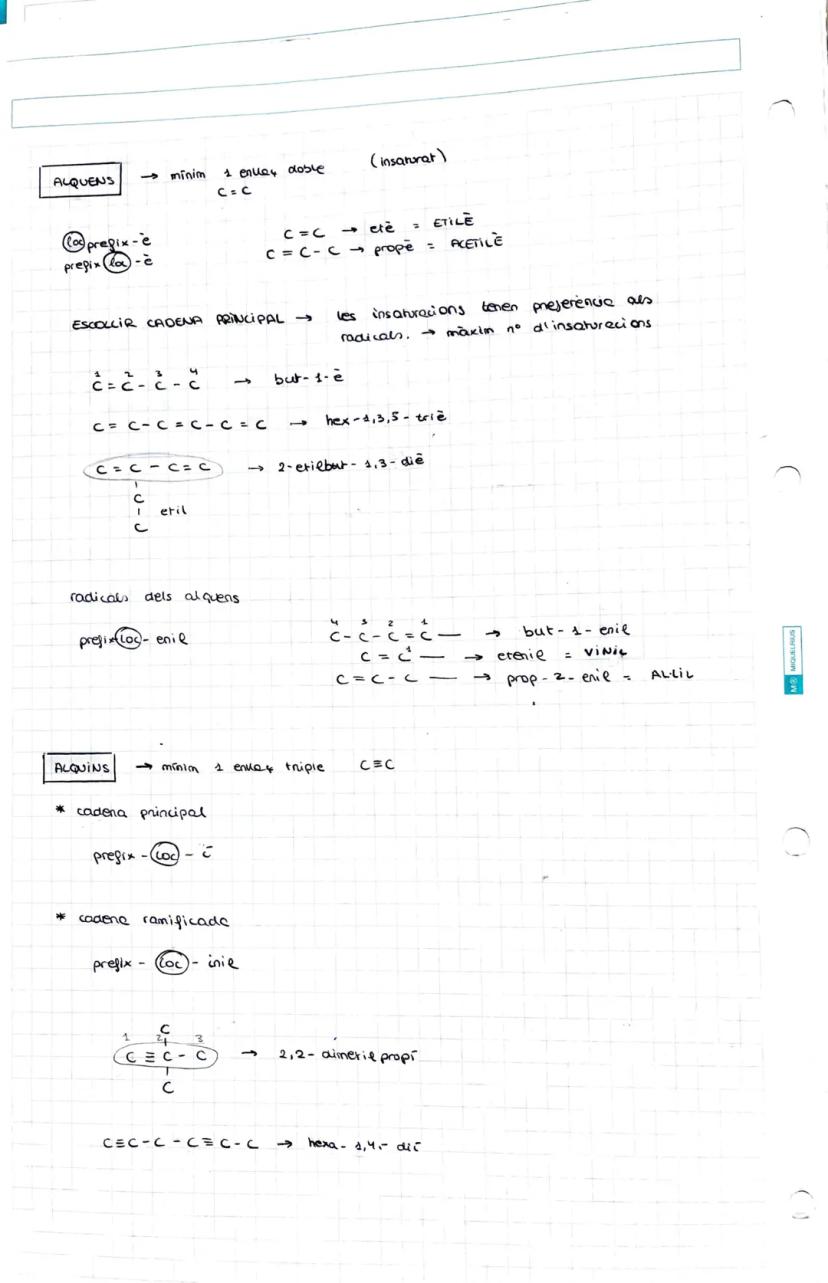 ALQUENS → mínim 1 enllaç doble (insaturat)
C=C
loc prefix-è
prefix loc -è
C=C → etè = ETILÈ
C=C-C → propè = ACETILÈ
ESCOLLIR CADENA PRINCIPAL → les insaturacions tenen preferència als
radicals. → màxim nº d'insaturacions
1 2 3 4
C=C-C-C → but-1-è
C=C-C=C-C=C → hex-1,3,5-triè
C=C-C=C → 2-etilbut-1,3-diè
C
C
etil
radicals dels alquens
prefix loc - enil
4 3 2 1
C-C-C=C— → but-1-enil
1
C=C— → etenil = VINIL
C=C-C — → prop-2-enil = AL·LIL
M® MIQUELRIUS
ALQUINS → mínim 1 enllaç triple C≡C
* cadena principal
prefix - loc - í
* cadena ramificada
prefix - loc - inil
C
1 2 3
C≡C-C → 2,2-dimetilpropí
C
C≡C-C-C≡C-C → hexa-1,4-dií